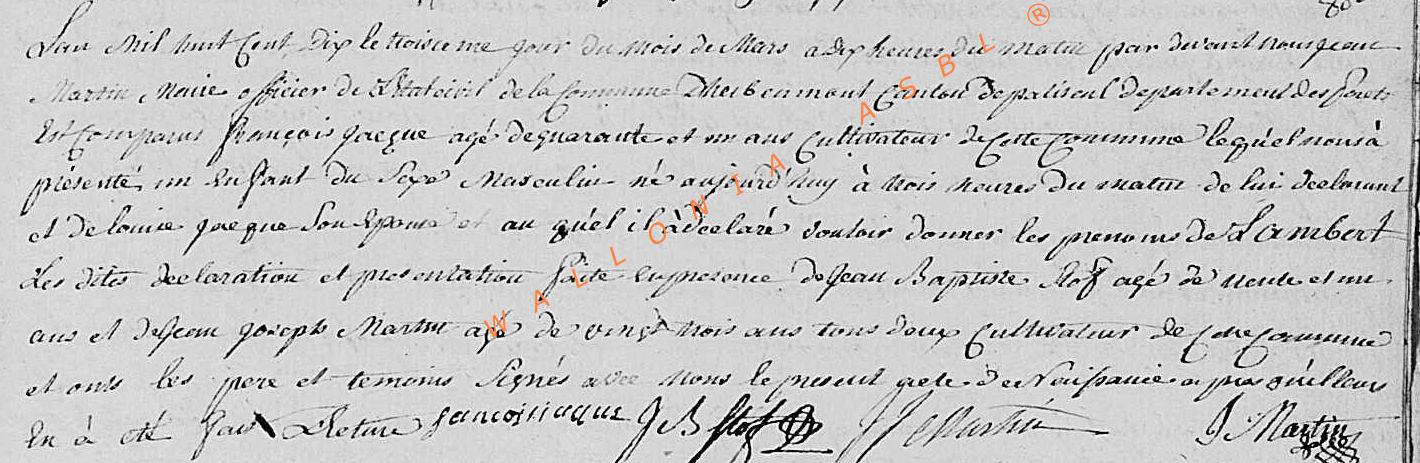 Lan Mil huit Cent Dix le troisieme jour du Mois de Mars a dix heures du matin par devant nous jean
Martin Maire officier de L'Etat civil de la Commune Dherbeumont Canton de paliseul departement des forets
Est Comparus françois jacque agé de quarante et un ans Cultivateur de Cette Commune lequel nous à
présenté un Enfant du Sexe Masculin né aujourd'huy à trois heures du matin de lui declarant
et de louise jacque Son Epouse et au quél il à declaré vouloir donner les prenoms de Lambert
Les dites declaration et presentation faite En presence de Jean Baptiste Stof agé de trente et un
ans et de Jean joseph Martin agé de vingt trois ans tous deux Cultivateur de Cette Commune
et onts les pere et temoins Signés avec Nous le present acte de Naissance a pres qu'il leurs
En à été fait Lecture francois jacque J B Stof J J Martin J Martin
WALLONIA ASBL ®